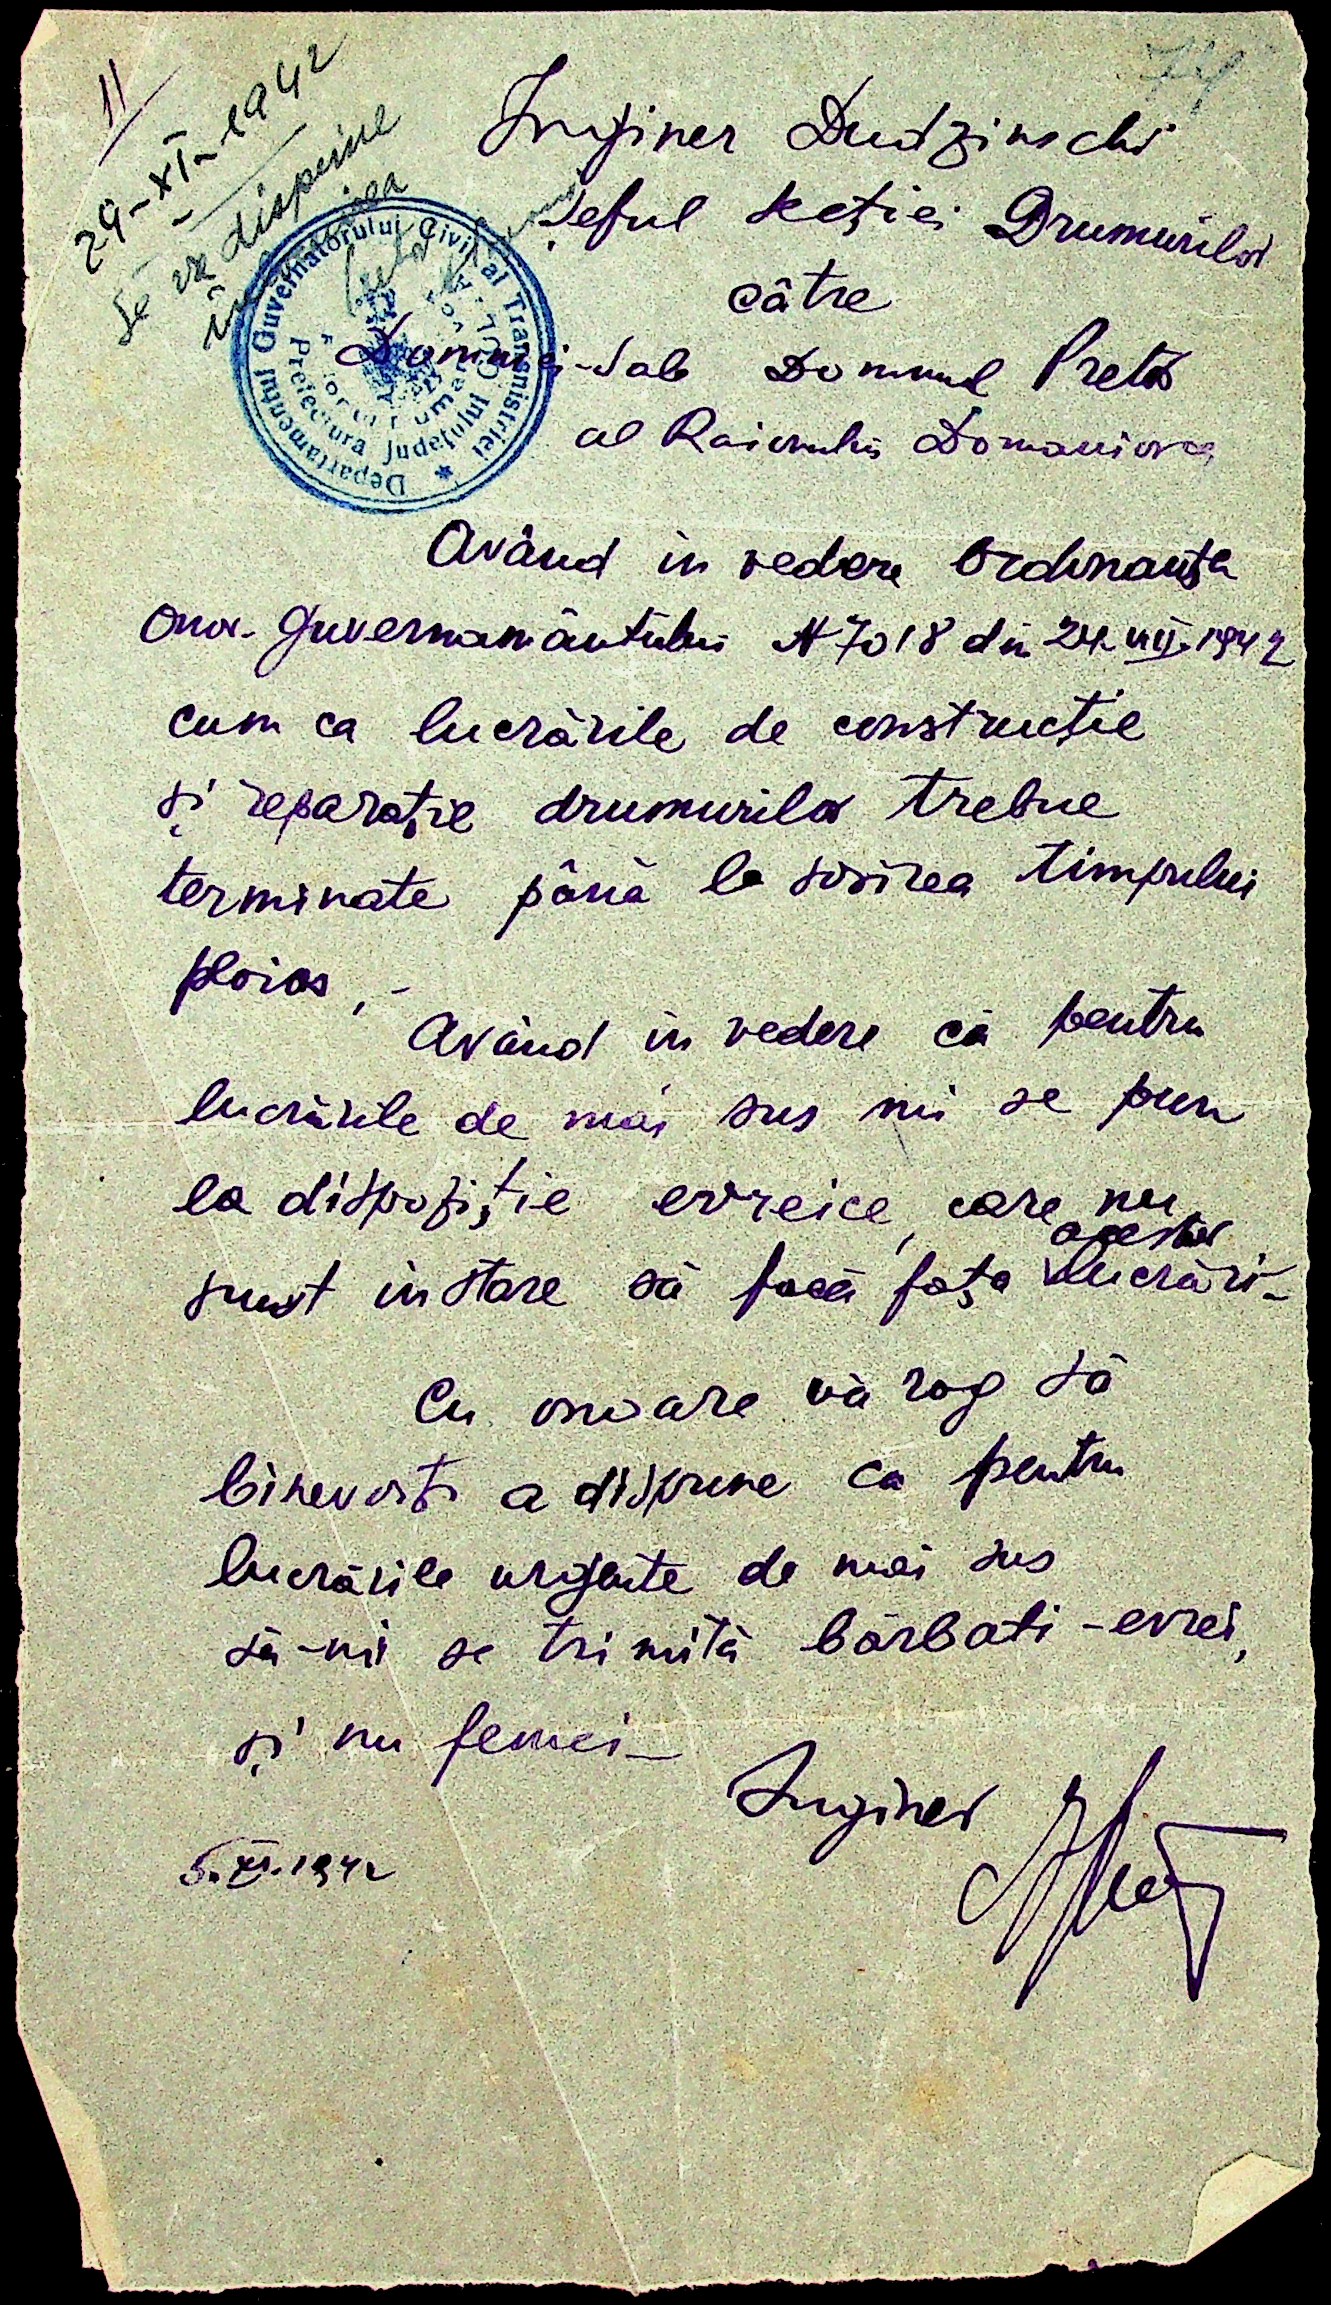 74
11
29-XI-1942
Se va dispune
în
Departamentul Guvernatorului Civil al Transnistriei
Prefectura Județului
Inginer Dudzinschi
Șeful secției Drumurilor
către
Domniei-Sale Domnul Pretor
al Raionului Domaniovca
Având in vedere Ordonanța
Onor. Guvernamântului N 7018 din 24.VIII.1942
cum ca lucrările de construcție
și reparație drumurilor trebue
terminate până la sosirea timpului
ploios,-
Având in vedere că pentru
lucrările de mai sus mi se pun
la dispoziție evreice, care nu
sunt in stare să facă fața acestor lucrări-
Cu onoare vă rog să
binevoiți a dispune ca pentru
lucrările urgente de mai sus
să-mi se trimită bărbati-evrei,
și nu femei-
Inginer
5.XI.1942